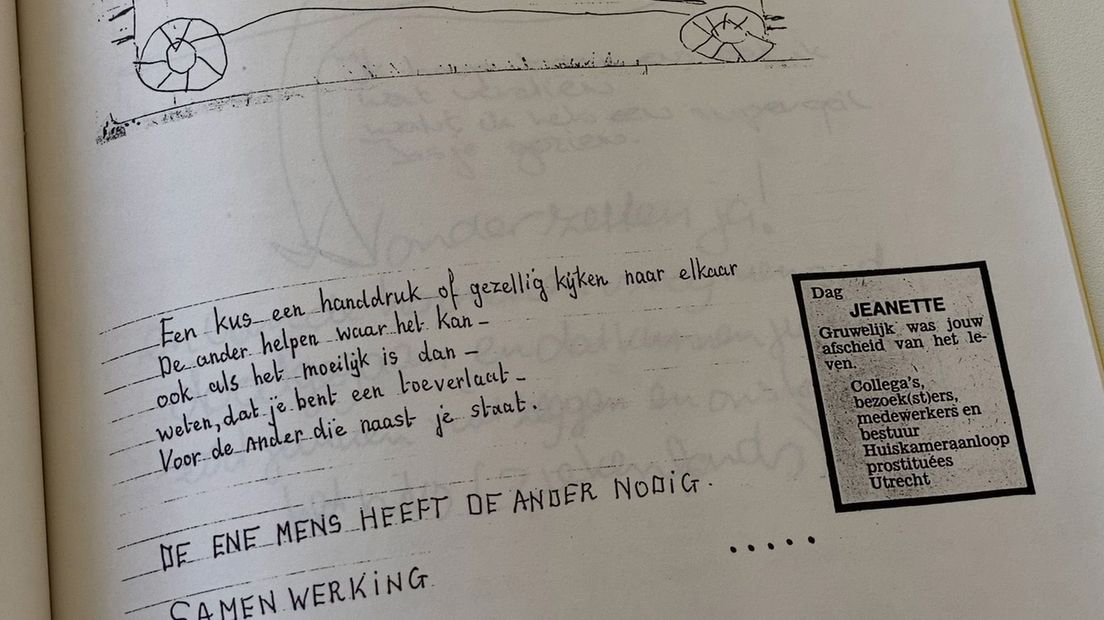 Een kus een handdruk of gezellig kijken naar elkaar
De ander helpen waar het kan -
ook als het moeilijk is dan -
weten, dat je bent een toeverlaat -
Voor de Ander die naast je staat.
DE ENE MENS HEEFT DE ANDER NODIG.
.....
SAMEN WERKING
Dag
JEANETTE
Gruwelijk was jouw
afscheid van het le-
ven.
Collega's,
bezoek(st)ers,
medewerkers en
bestuur
Huiskameraanloop
prostituées
Utrecht